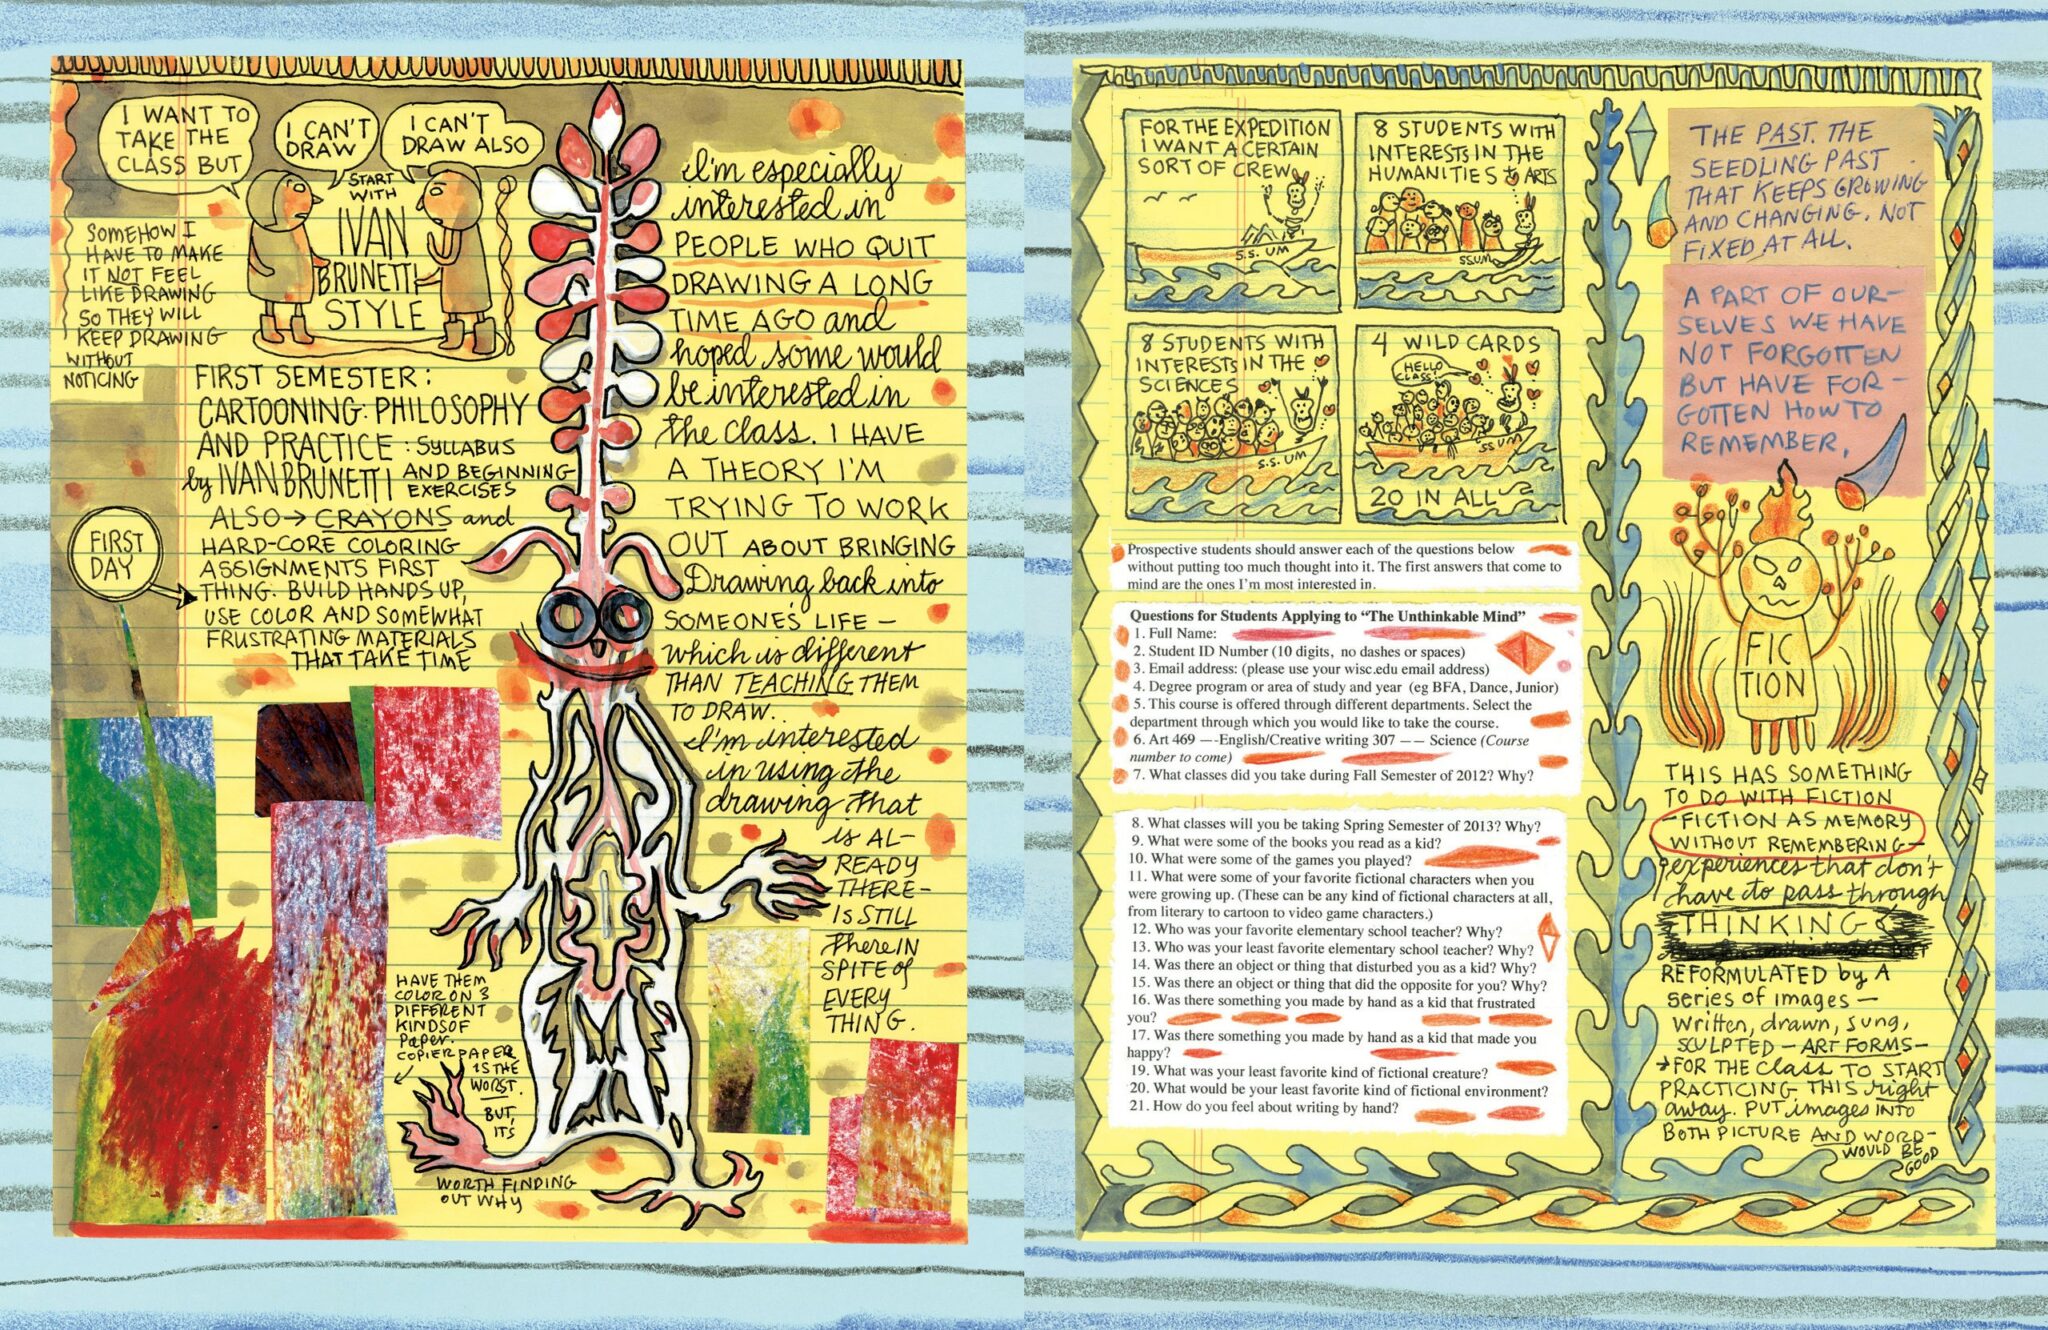 I WANT TO
TAKE THE
CLASS BUT
I CAN'T
DRAW
I CAN'T
DRAW ALSO
START
WITH
IVAN
BRUNETTI
STYLE
SOMEHOW I
HAVE TO MAKE
IT NOT FEEL
LIKE DRAWING
SO THEY WILL
KEEP DRAWING
WITHOUT
NOTICING
FIRST SEMESTER:
CARTOONING: PHILOSOPHY
AND PRACTICE: SYLLABUS
by IVAN BRUNETTI AND BEGINNING
EXERCISES
ALSO → CRAYONS and
HARD-CORE COLORING
ASSIGNMENTS FIRST
THING: BUILD HANDS UP,
USE COLOR AND SOMEWHAT
FRUSTRATING MATERIALS
THAT TAKE TIME
FIRST
DAY
HAVE THEM
COLOR ON 3
DIFFERENT
KINDS OF
Paper.
COPIER PAPER
IS THE
WORST.
BUT,
ITS
WORTH FINDING
OUT WHY
I'm especially
interested in
PEOPLE WHO QUIT
DRAWING A LONG
TIME AGO and
hoped some would
be interested in
the class. I HAVE
A THEORY I'M
TRYING TO WORK
OUT ABOUT BRINGING
Drawing back into
SOMEONE'S LIFE —
which is different
THAN TEACHING THEM
TO DRAW.
I'm interested
in using the
drawing that
is AL-
READY
THERE -
IS STILL
there IN
SPITE of
EVERY
THING.
FOR THE EXPEDITION
I WANT A CERTAIN
SORT OF CREW
S.S. UM
8 STUDENTS WITH
INTERESTS IN THE
HUMANITIES + ARTS
SS UM
8 STUDENTS WITH
INTERESTS IN THE
SCIENCES
S.S. UM
4 WILD CARDS
HELLO
CLASS!
SS UM
20 IN ALL
Prospective students should answer each of the questions below
without putting too much thought into it. The first answers that come to
mind are the ones I'm most interested in.
Questions for Students Applying to "The Unthinkable Mind"
1. Full Name:
2. Student ID Number (10 digits, no dashes or spaces)
3. Email address: (please use your wisc.edu email address)
4. Degree program or area of study and year (eg BFA, Dance, Junior)
5. This course is offered through different departments. Select the
department through which you would like to take the course.
6. Art 469 —-English/Creative writing 307 —— Science (Course
number to come)
7. What classes did you take during Fall Semester of 2012? Why?
8. What classes will you be taking Spring Semester of 2013? Why?
9. What were some of the books you read as a kid?
10. What were some of the games you played?
11. What were some of your favorite fictional characters when you
were growing up. (These can be any kind of fictional characters at all,
from literary to cartoon to video game characters.)
12. Who was your favorite elementary school teacher? Why?
13. Who was your least favorite elementary school teacher? Why?
14. Was there an object or thing that disturbed you as a kid? Why?
15. Was there an object or thing that did the opposite for you? Why?
16. Was there something you made by hand as a kid that frustrated
you?
17. Was there something you made by hand as a kid that made you
happy?
19. What was your least favorite kind of fictional creature?
20. What would be your least favorite kind of fictional environment?
21. How do you feel about writing by hand?
THE PAST. THE
SEEDLING PAST
THAT KEEPS GROWING
AND CHANGING. NOT
FIXED AT ALL.
A PART OF OUR-
SELVES WE HAVE
NOT FORGOTTEN
BUT HAVE FOR-
GOTTEN HOW TO
REMEMBER,
FIC
TION
THIS HAS SOMETHING
TO DO WITH FICTION
- FICTION AS MEMORY
WITHOUT REMEMBERING -
experiences that don't
have to pass through
THINKING
REFORMULATED by A
series of images —
written, drawn, sung,
SCULPTED — ART FORMS -
→ FOR THE Class TO START
PRACTICING THIS right
away. PUT images INTO
BOTH PICTURE AND WORD-
WOULD BE
GOOD